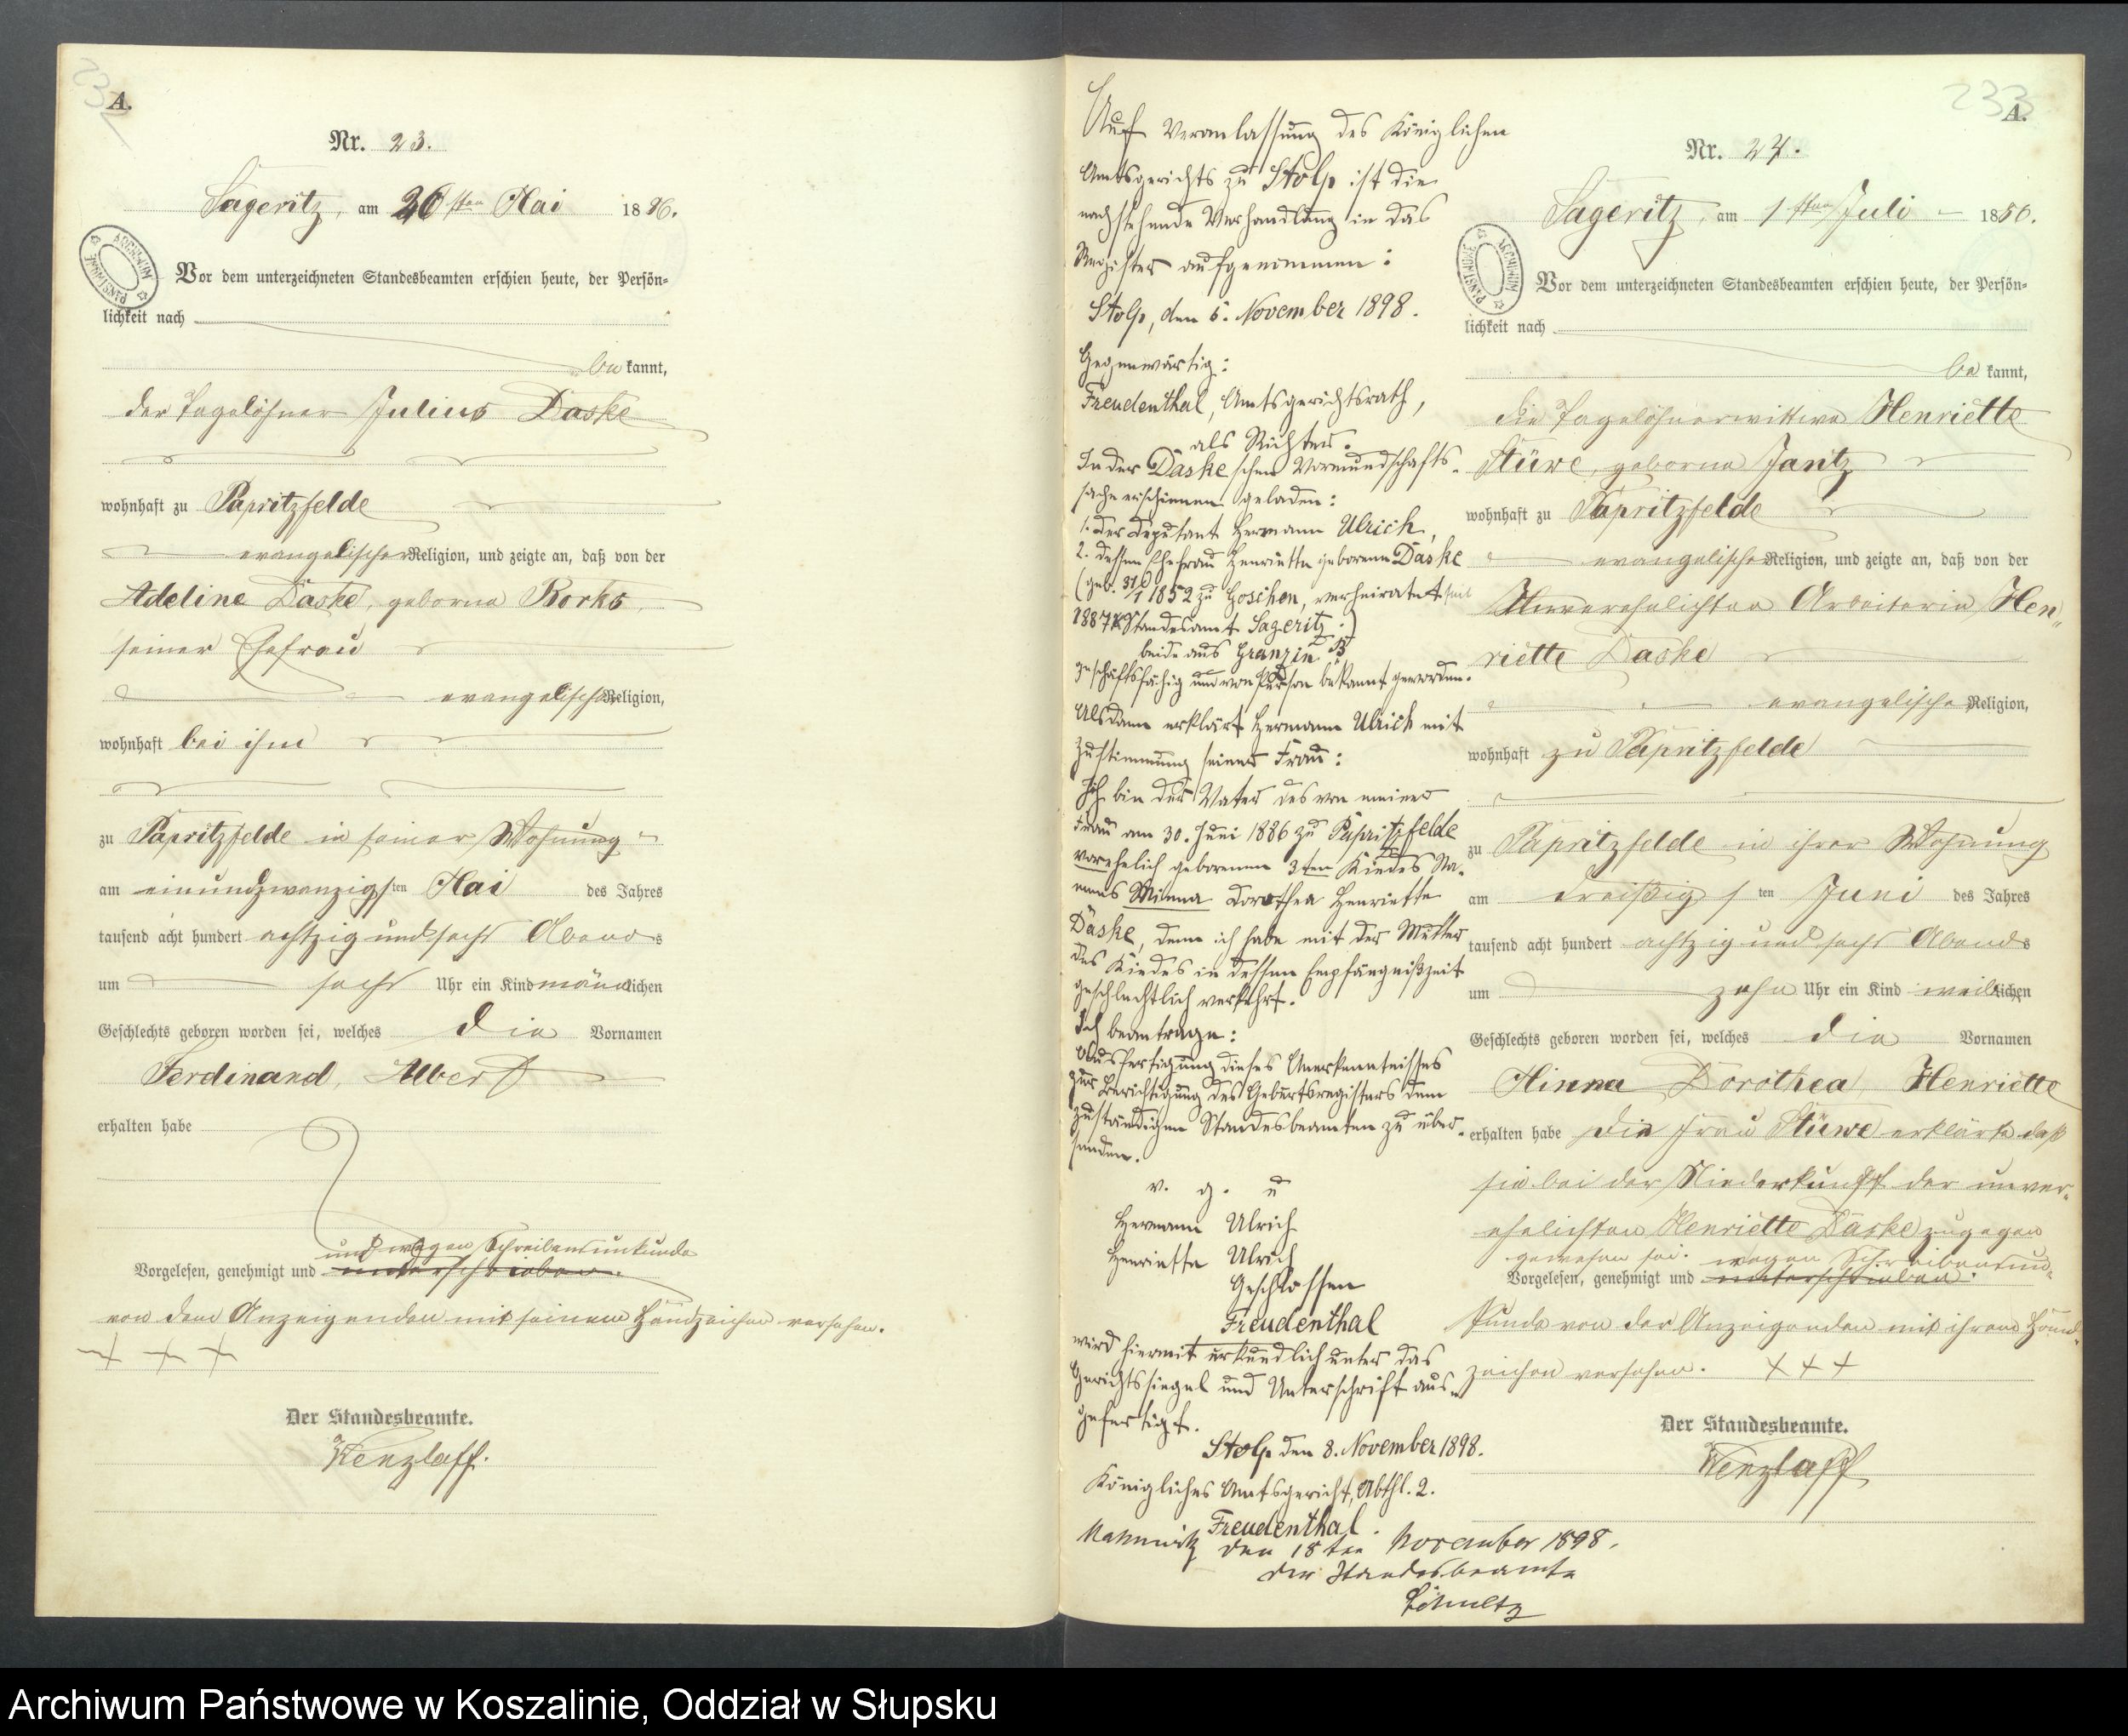 A.
Nr. 23.
Sageritz, am 26sten Mai 1886.
Vor dem unterzeichneten Standesbeamten erschien heute, der Persön-
lichkeit nach
be kannt,
der Tagelöhner Julius Daske
wohnhaft zu Papritzfelde
evangelischer Religion, und zeigte an, daß von der
Adeline Daske, geborne
seiner Ehefrau
evangelischer Religion,
wohnhaft bei ihm
zu Papritzfelde in seiner Wohnung
am einundzwanzigsten Mai des Jahres
tausend acht hundert achtzig und sechs Abends
um sechs Uhr ein Kind männlichen
Geschlechts geboren worden sei, welches die Vornamen
Ferdinand, Albert
erhalten habe
und wegen Schreibensunkunde
Vorgelesen, genehmigt und unterschrieben.
von dem Anzeigenden mit seinem Handzeichen versehen.
+ + +
Der Standesbeamte.
Wenzlaff.
Auf Veranlassung des Königlichen
Amtsgerichts zu Stolp ist die
nachstehende Verhandlung in das
Register aufgenommen:
Stolp, den 5. November 1898.
Gegenwärtig:
Freudenthal, Amtsgerichtsrath,
als Richter.
In der Daskeschen Vormundschafts-
sache erschienen geladen:
1. der Deputant Hermann Ulrich,
2. dessen Ehefrau Henriette geborene Daske
(geb. 31/1 1852 zu Goschen, verheiratet seit
1887 Standesamt Sageritz.)
beide aus Granzin
geschäftsfähig und von Person bekannt geworden.
Alsdann erklärt Hermann Ulrich mit
Zustimmung seiner Frau:
Ich bin der Vater des von meiner
Frau am 30. Juni 1886 zu Papritzfelde
vorehelich geborenen 3ten Kindes Na-
mens Minna Dorothea Henriette
Daske, denn ich habe mit der Mutter
des Kindes in dessen Empfängnißzeit
geschlechtlich verkehrt.
Ich beantrage:
Ausfertigung dieses Anerkenntnisses
zur Berichtigung des Geburtsregisters dem
zuständigen Standesbeamten zu über-
senden.
v. g. u
Hermann Ulrich
Henriette Ulrich
Geschlossen
Freudenthal
wird hiermit urkundlich unter das
Gerichtssiegel und Unterschrift aus-
gefertigt.
Stolp den 8. November 1898.
Königliches Amtsgericht, Abthl. 2.
Freudenthal.
den 18ten November 1898.
Der Standesbeamte
Schultz
233
A.
Nr. 24.
Sageritz, am 1sten Juli 1886.
Vor dem unterzeichneten Standesbeamten erschien heute, der Persön-
lichkeit nach
be kannt,
die Tagelöhnerwittwe Henriette
Stüwe, geborne Jantz
wohnhaft zu Papritzfelde
evangelischer Religion, und zeigte an, daß von der
Unverehelichten Arbeiterin Hen-
riette Daske
evangelischer Religion,
wohnhaft zu Papritzfelde
zu Papritzfelde in ihrer Wohnung
am dreißigsten Juni des Jahres
tausend acht hundert achtzig und sechs Abends
um zehn Uhr ein Kind weiblichen
Geschlechts geboren worden sei, welches die Vornamen
Minna Dorothea Henriette
erhalten habe Die Frau Stüwe erklärte daß
sie bei der Niederkunft der unver-
ehelichten Henriette Daske zugegen
gewesen sei. wegen Schreibensun-
Vorgelesen, genehmigt und unterschrieben.
kunde von der Anzeigenden mit ihrem Hand-
zeichen versehen. + + +
Der Standesbeamte.
Wenzlaff
Archiwum Państwowe w Koszalinie, Oddział w Słupsku